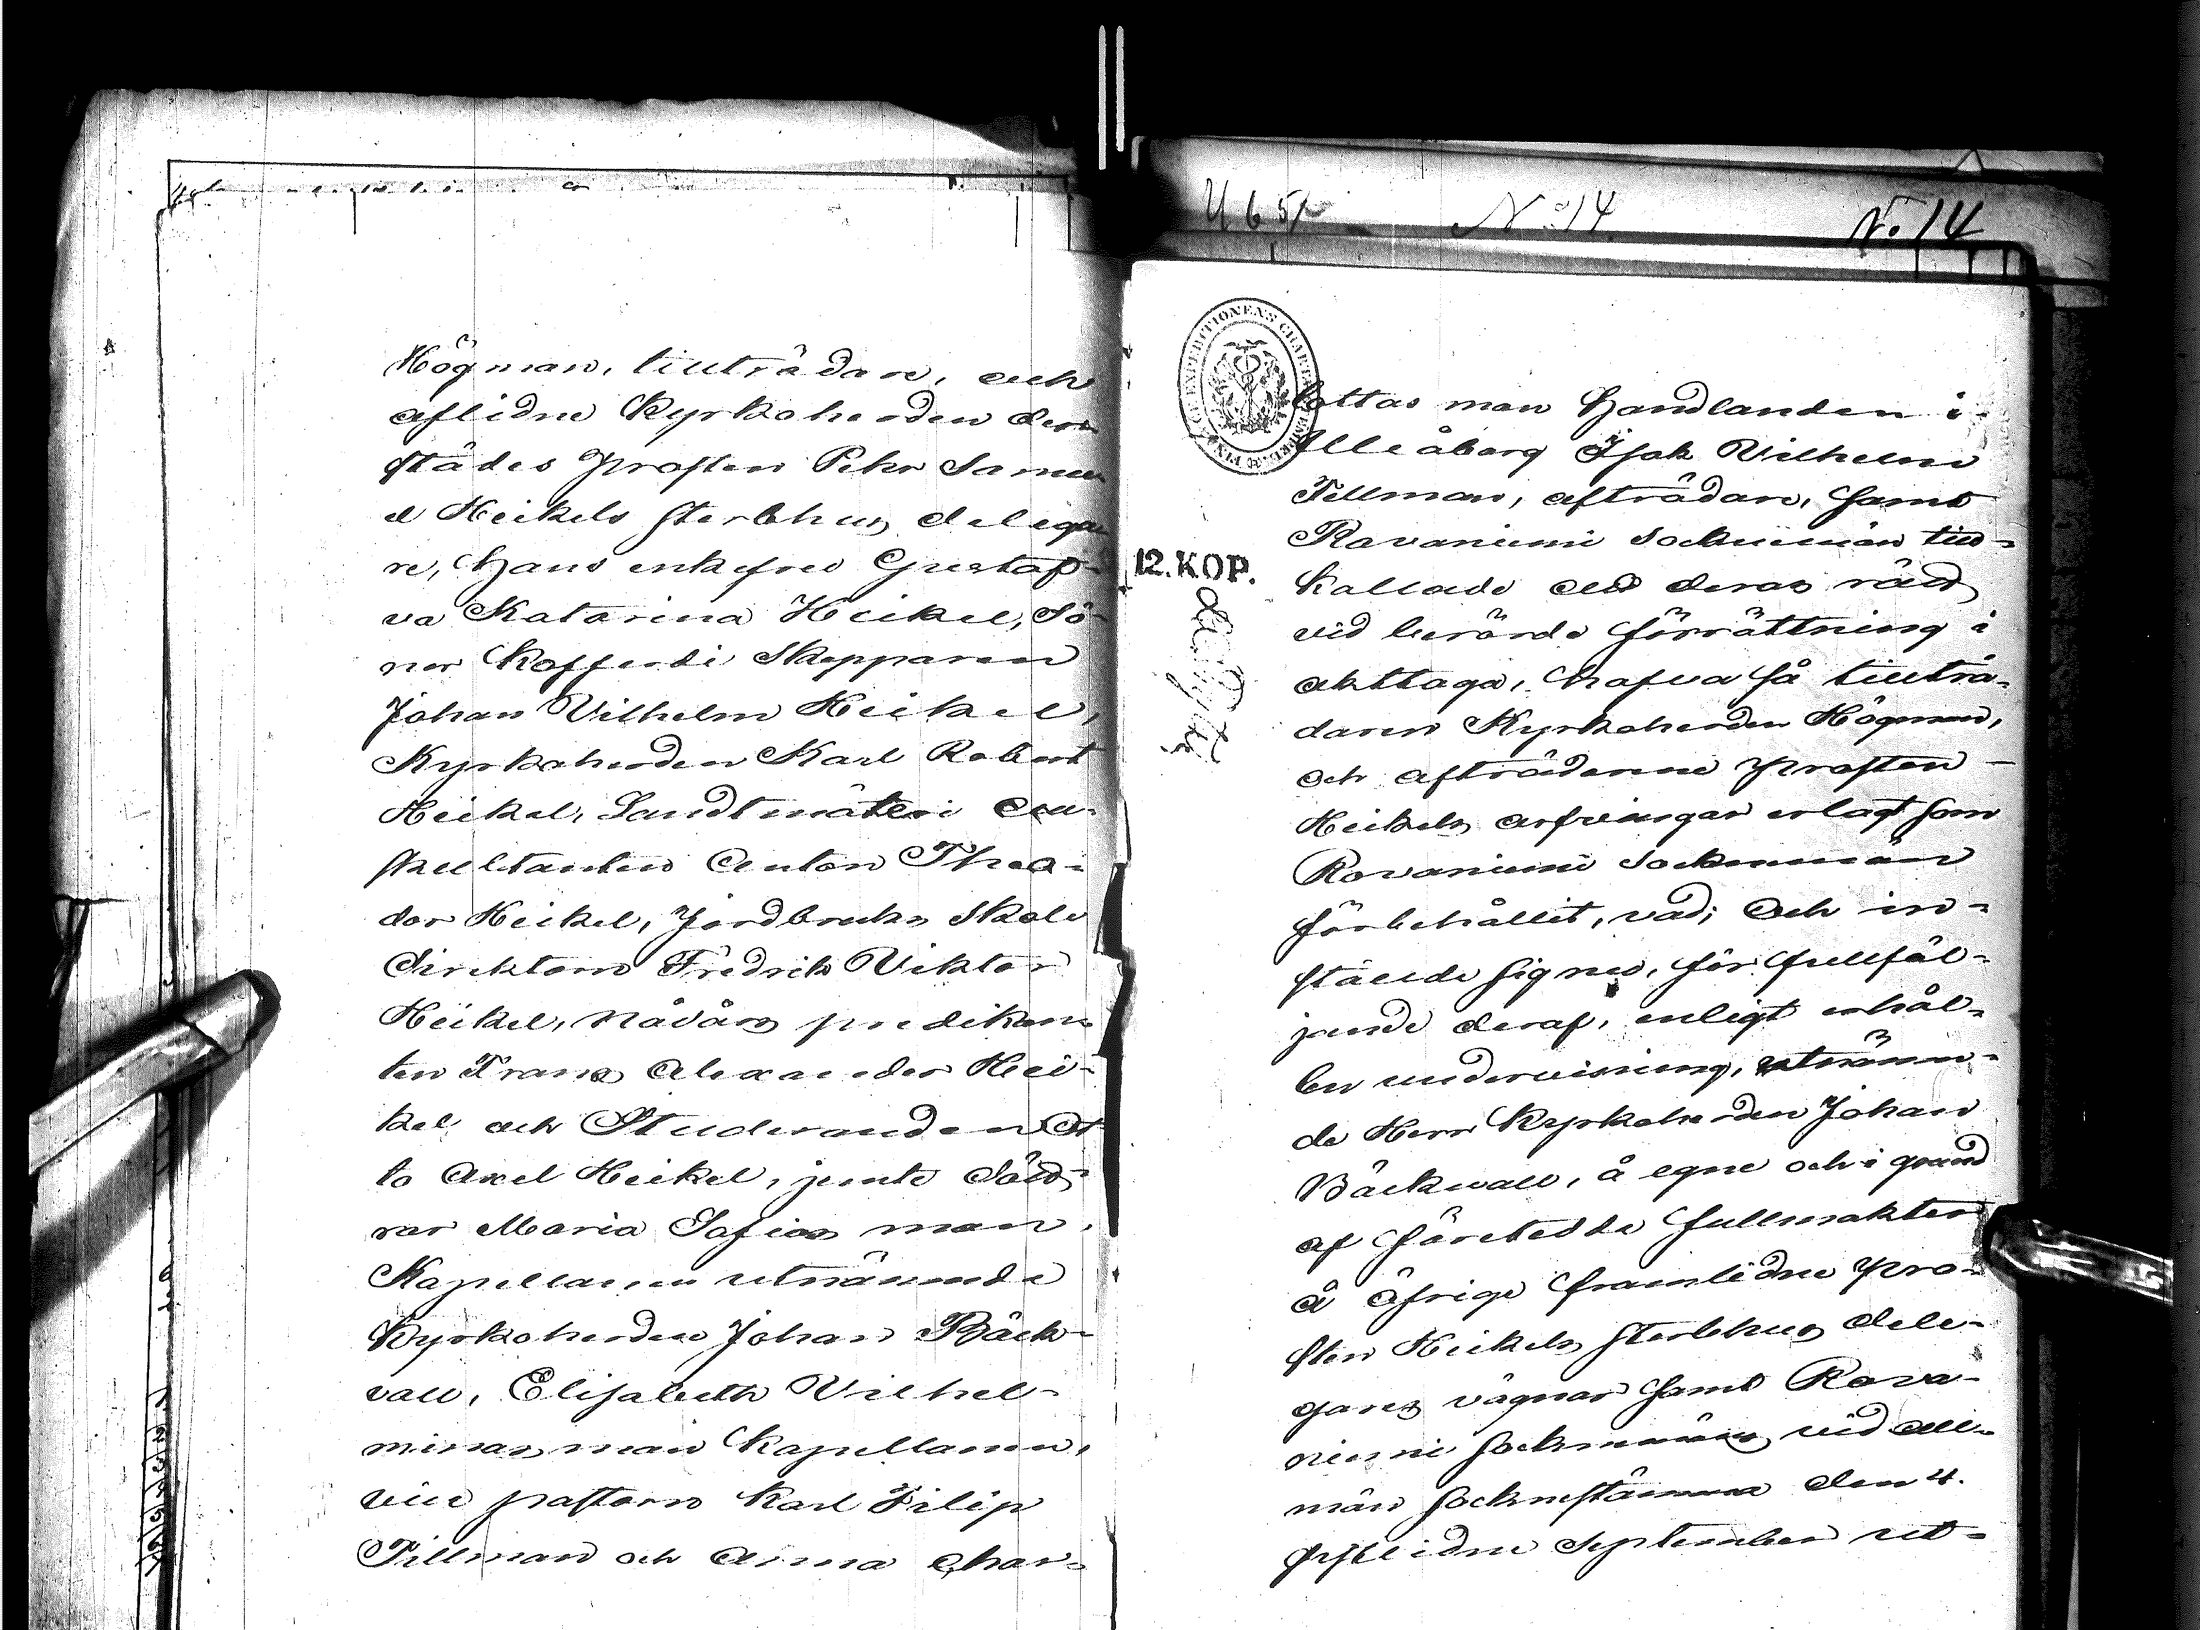 Högman, tillträdare, och
aflidne Kyrkoherden der-
städes Prosten Pehr Samu-
el Heikels sterbhus delega-
re, hans enkefru Gustaf-
va Katarina Heikel, Sö-
ner Kofferdi Skepparen
Johan Vilhelm Heikel,
Kyrkoherden Karl Robert
Heikel, Landtmäteri Au-
skultanten Anton Theo-
dor Heikel, Jordbruks Skole
Direktorn Fredrik Viktor
Heikel, Nådårs predikan-
ten Frans Alexander Hei-
kel och Studeranden Ot-
to Axel Heikel, jemte Död-
rar Maria Sofias man,
Kapellanen utnämnde
Kyrkoherden Johan Bäck-
vall, Elisabeth Vilhel-
minas man Kapellanen,
vice pastorn Karl Filip
Tillman och Anna Char-
U 651 No 14 No 14
FINSKA EXPEDITIONENS CHARTÆ
12. KOP.
lottas man Handlanden i
Uleåborg Isak Vilhelm
Tellman, afträdare, samt
Rovaniemi Sockenmän till-
kallade att deras rätt
vid berörde förrättning i
akttaga, hafva så tillträ-
daren Kyrkoherden Högman,
och afträdarene Prosten
Heikels arfvingar erlagt som
Rovaniemi Sockenmän
förbehållit, vad; Och in-
ställde sig nu, för fullföl-
jande deraf, enligt erhål-
len undervisning, utnämn-
de Herr Kyrkoherden Johan
Bäckvall, å egne och i grund
af företedde fullmakter
å öfrige framlidne Pro-
sten Heikels sterbhus dele-
gares vägnar samt Rova-
niemi Sockenmän, vid all-
män sockenstämma den 4.
sistlidne September ut-